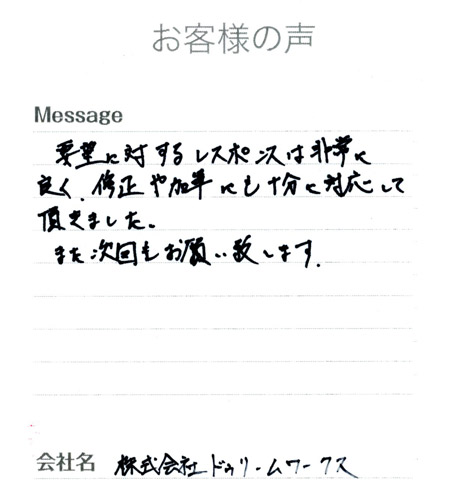 お客様の声
Message
要望に対するレスポンスは非常に
良く、修正や加筆にも十分に対応して
頂きました。
また次回もお願い致します。
会社名 株式会社ドゥリームワークス